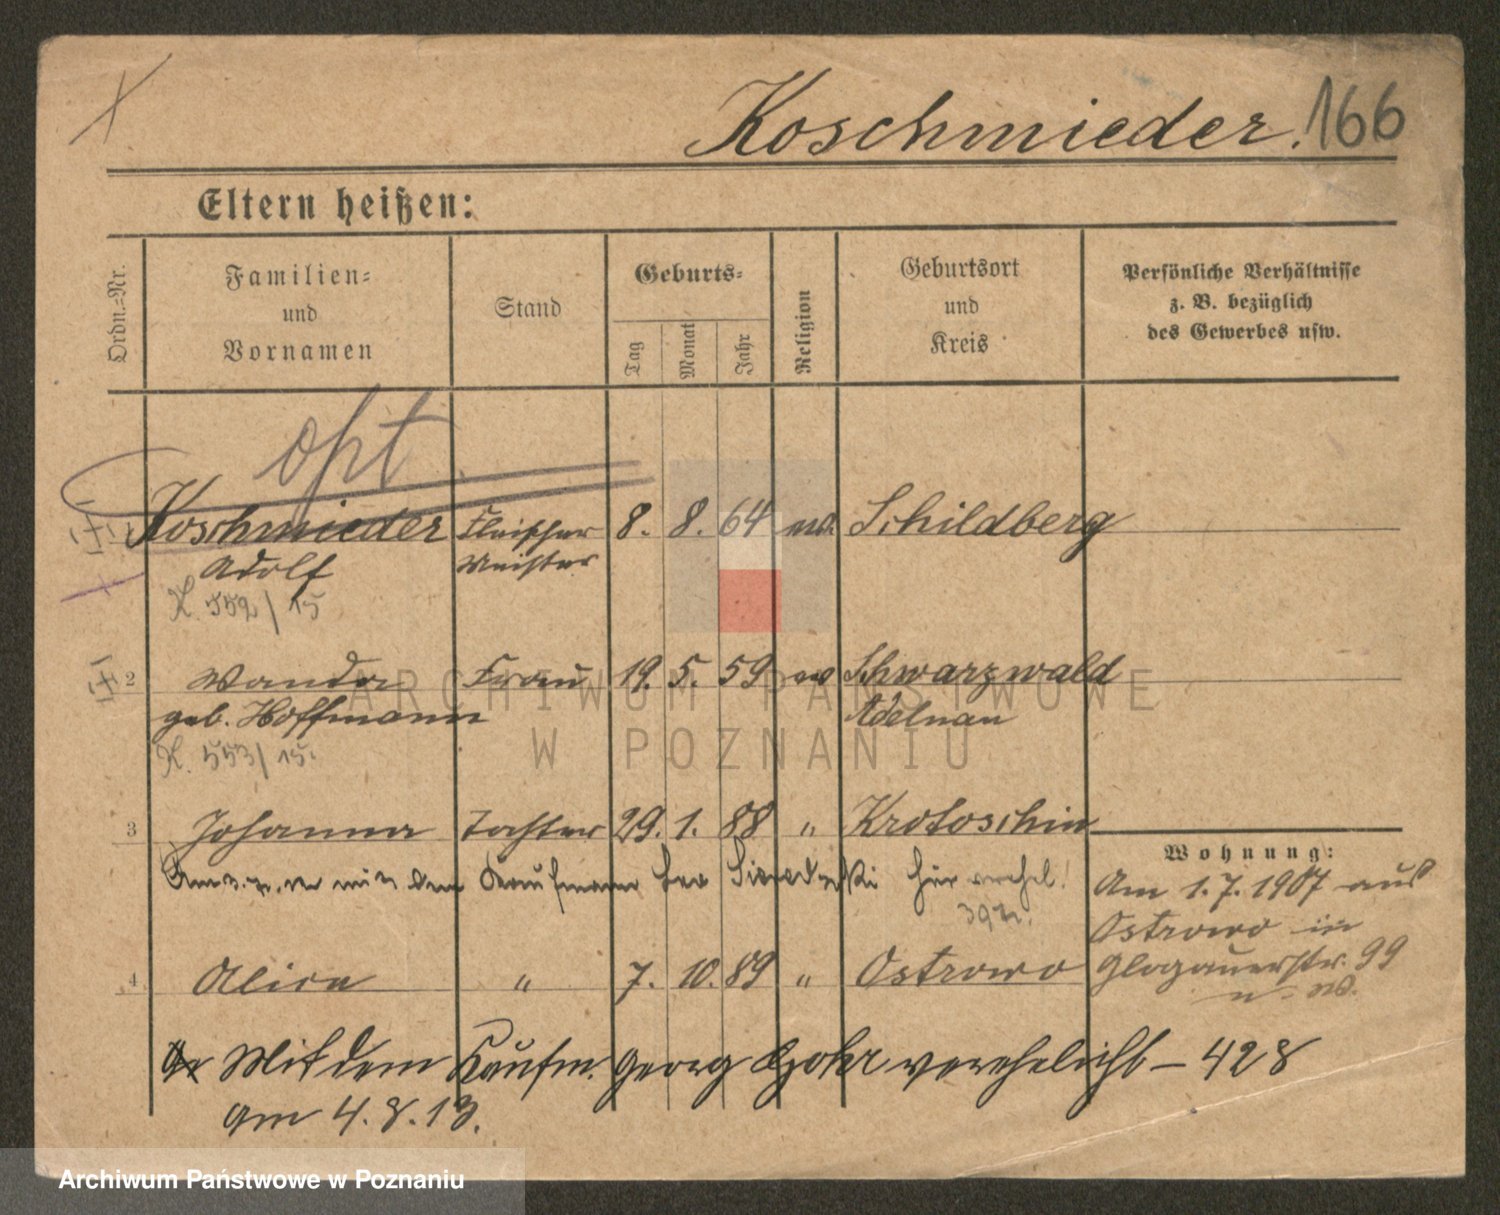 Koschmieder. 166
Eltern heißen:
Ordn.-Nr.
Familien-
und
Vornamen
Stand
Geburts-
Tag
Monat
Jahr
Religion
Geburtsort
und
Kreis
Persönliche Verhältnisse
z. B. bezüglich
des Gewerbes usw.
opt
Koschmieder Fleischer 8. 8. 64 ev. Schildberg
Adolf Meister
K. 552/15
2 Wanda Frau 19. 5. 59 ev Schwarzwald
geb. Hoffmann Adelnau
K. 553/15.
3 Johanna Tochter 29. 1. 88 " Krotoschin
Am mit dem Kaufmann hier verehel.!
Wohnung:
Am 1.7.1907 aus
Ostrowo in
Glogauerstr. 99
4 Alice " 7. 10. 89 " Ostrowo
Mit dem Kaufm. Georg verehelicht – 428
am 4.8.13.
ARCHIWUM PAŃSTWOWE
W POZNANIU
Archiwum Państwowe w Poznaniu